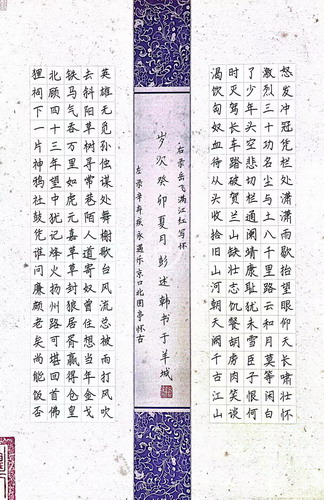 怒发冲冠凭栏处潇潇雨歇抬望眼仰天长啸壮怀
激烈三十功名尘与土八千里路云和月莫等闲白
了少年头空悲切栏通阙靖康耻犹未雪臣子恨何
时灭驾长车踏破贺兰山缺壮志饥餐胡虏肉笑谈
渴饮匈奴血待从头收拾旧山河朝天阙千古江山
右录岳飞满江红写怀
岁次癸卯夏月彭述韩书于羊城
左录辛弃疾永遇乐京口北固亭怀古
英雄无觅孙仲谋处舞榭歌台风流总被雨打风吹
去斜阳草树寻常巷陌人道寄奴曾住想当年金戈
铁马气吞万里如虎元嘉草草封狼居胥赢得仓皇
北顾四十三年望中犹记烽火扬州路可堪回首佛
狸祠下一片神鸦社鼓凭谁问廉颇老矣尚能饭否